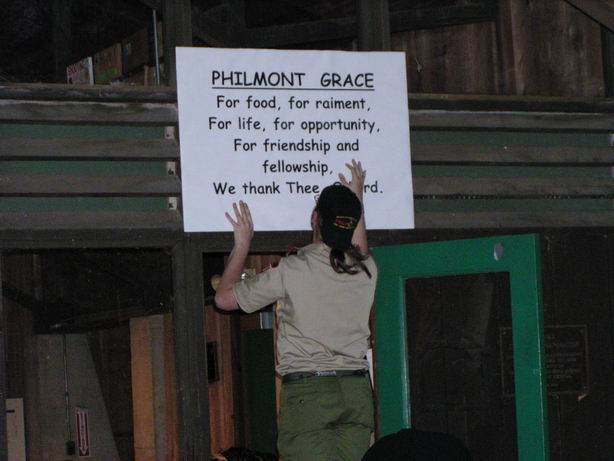 PHILMONT GRACE
For food, for raiment,
For life, for opportunity,
For friendship and
fellowship,
We thank Thee, rd.